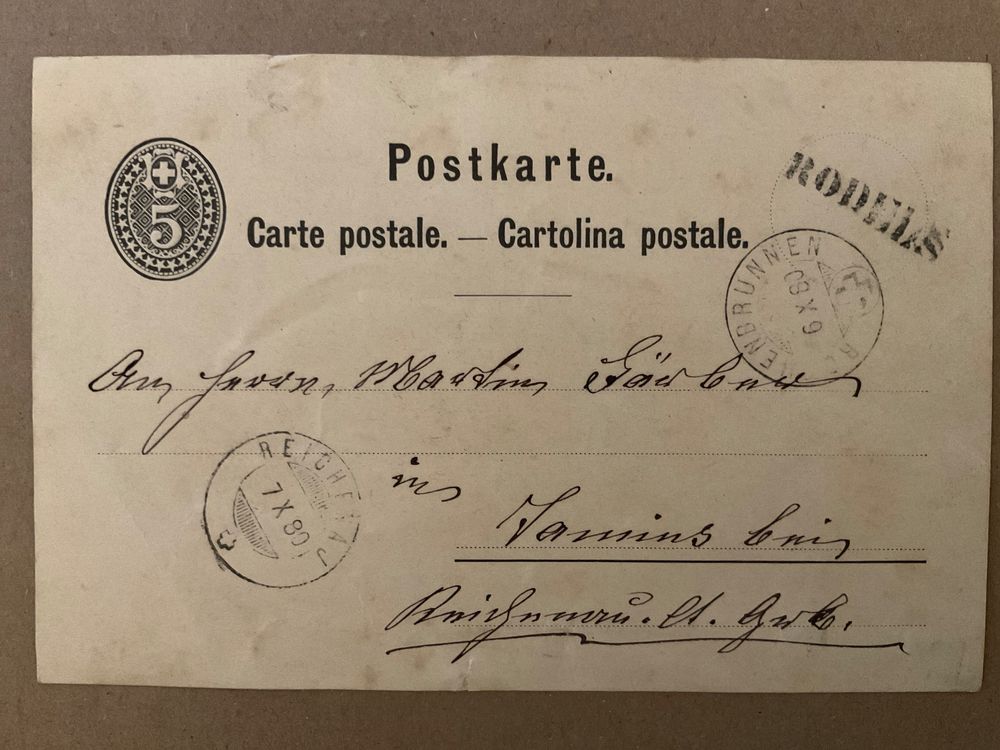 5
Postkarte.
RODELS
Carte postale. — Cartolina postale.
ENBRUNNEN
An Herrn Martin Färber
REICHENAU
7 X 80
in
Tamins bei
Reichenau. Ct. Grb.